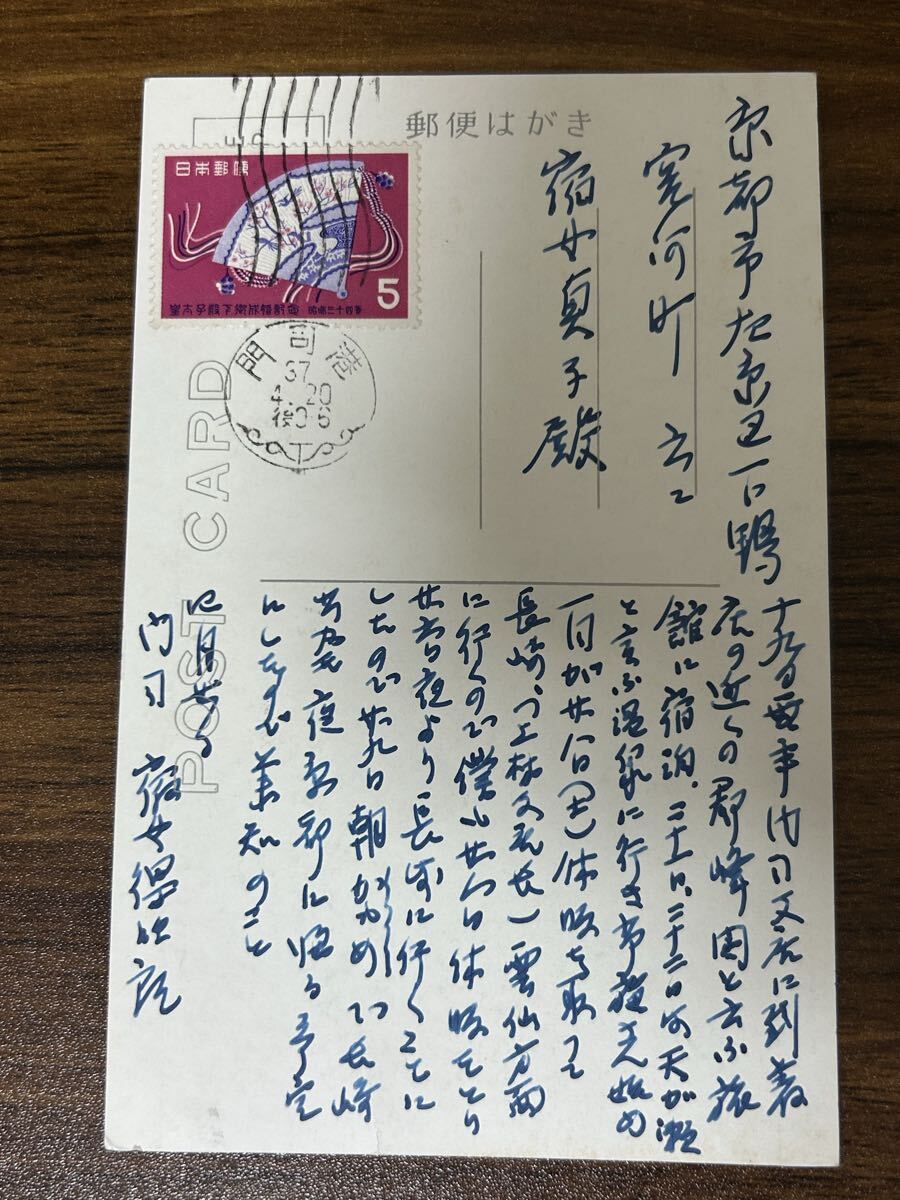 郵便はがき
日本郵便
5
皇太子殿下御成婚記念 昭和三十四年
門司港
37
4.20
後0-6
POST CARD
京都市左京区下鴨
宮河町 六二
宿女貞子殿
十九日無事門司支店に到着
店の近くの郡峰閣と云ふ旅
館に宿泊、二十一日、二十二日は天が瀬
と言ふ温泉に行き 市
一日が廿八日(土)休暇を取って
長崎、(上林支店長)雲仙方面
に行くので僕も廿八日休暇をとり
廿六日夜より長崎に行くことに
したので廿九日朝 長崎
夜京都に帰る予定
にした 承知のこと
四月廿日
門司 宿女